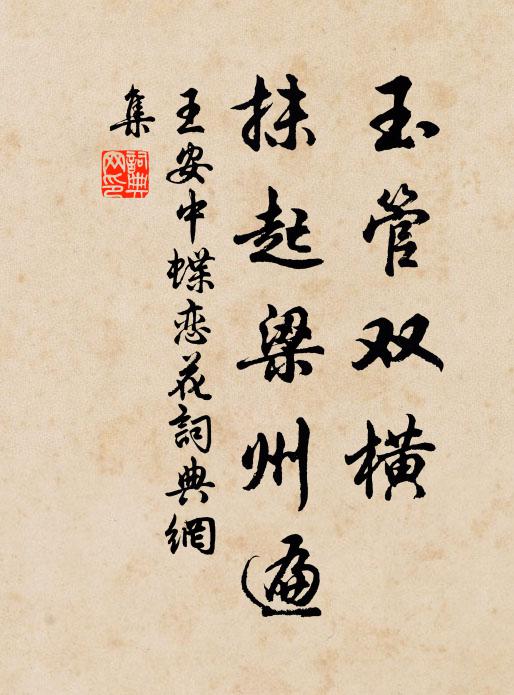 玉管双横
抹起梁州遍
王安中蝶恋花詞典網
集
詞典網印